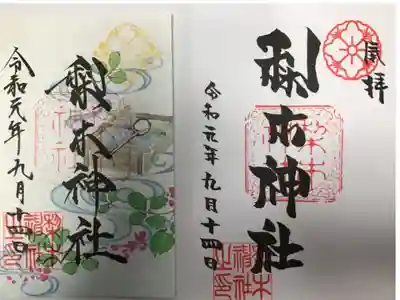 奉拝
梨木神社
令和元年九月十四日
梨木神社
令和元年九月十四日